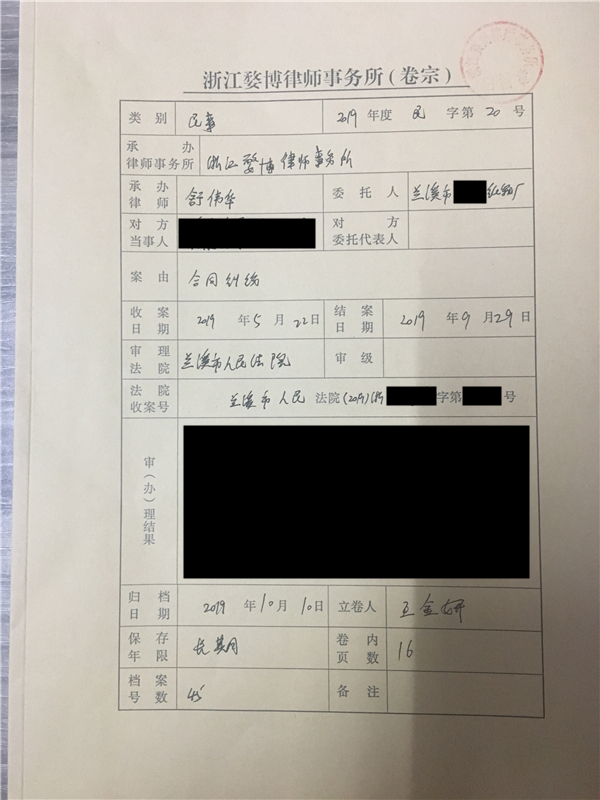 浙江婺博律师事务所（卷宗）
类别 民事 2019 年度 民 字第 20 号
承办律师事务所 浙江婺博律师事务所
承办律师 舒伟华 委托人 兰溪市
对方当事人 对方委托代表人
案由 合同纠纷
收案日期 2019 年 5 月 22 日 结案日期 2019 年 9 月 29 日
审理法院 兰溪市人民法院 审级
法院收案号 兰溪市人民 法院(2019)浙 字第 号
审（办）理结果
归档日期 2019 年 10 月 10 日 立卷人 王金妍
保存年限 长期 卷内页数 16
档案号数 45 备注